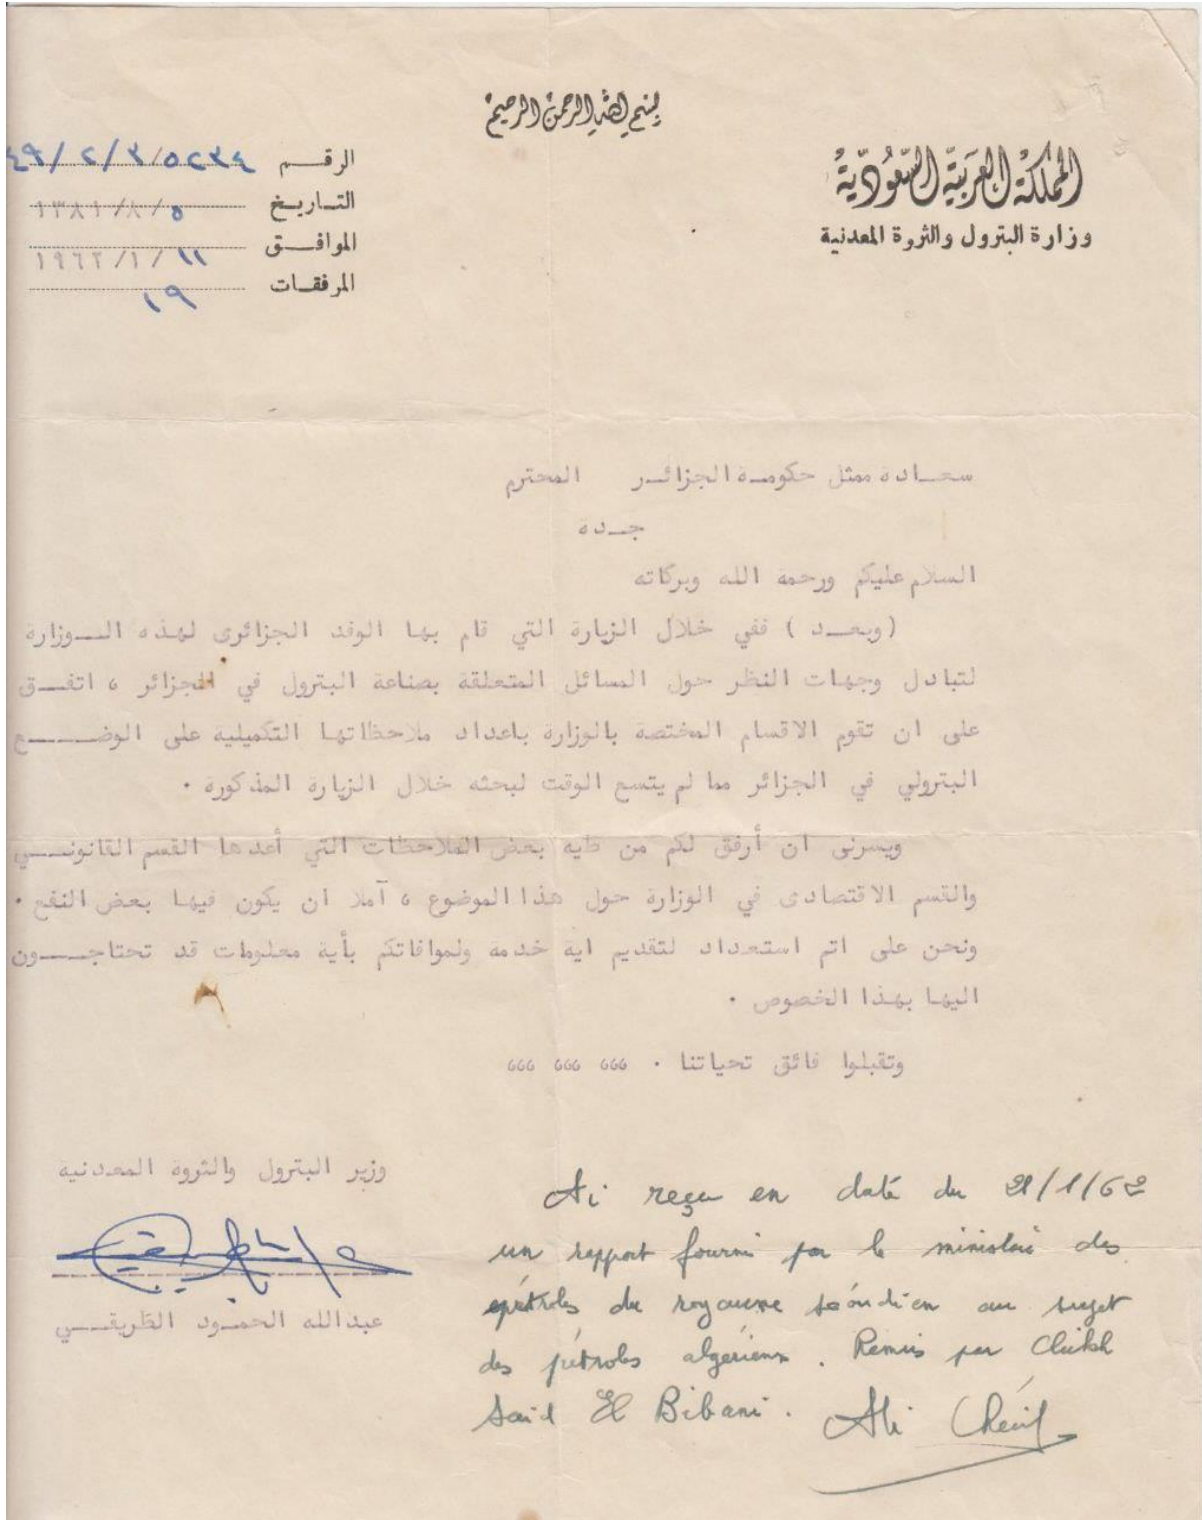 بسم الله الرحمن الرحيم
المملكة العربية السعودية
وزارة البترول والثروة المعدنية
الرقم ٤٩/٢/٣/٥٢٣٤
التاريخ ١٣٨١/٨/٥
الموافق ١٩٦٢/١/١١
المرفقات ١٩
سعادة ممثل حكومة الجزائر المحترم
جدة
السلام عليكم ورحمة الله وبركاته
(وبعد) ففي خلال الزيارة التي قام بها الوفد الجزائرى لهذه الوزارة
لتبادل وجهات النظر حول المسائل المتعلقة بصناعة البترول في الجزائر ، اتفق
على ان تقوم الاقسام المختصة بالوزارة باعداد ملاحظاتها التكميلية على الوضع
البترولي في الجزائر مما لم يتسع الوقت لبحثه خلال الزيارة المذكورة .
ويسرنى ان أرفق لكم من طيه بعض الملاحظات التي أعدها القسم القانوني
والقسم الاقتصادى في الوزارة حول هذا الموضوع ، آملا ان يكون فيها بعض النفع .
ونحن على اتم استعداد لتقديم اية خدمة ولموافاتكم بأية معلومات قد تحتاجون
اليها بهذا الخصوص .
وتقبلوا فائق تحياتنا . ،،، ،،، ،،،
وزير البترول والثروة المعدنية
عبدالله الحمود الطريقي
Ai reçu en date du 21/1/62
un rapport fourni par le ministère des
pétroles du royaume saoudien au sujet
des pétroles algériens. Remis par Cheikh
Said El Bibani. Ali Chérif